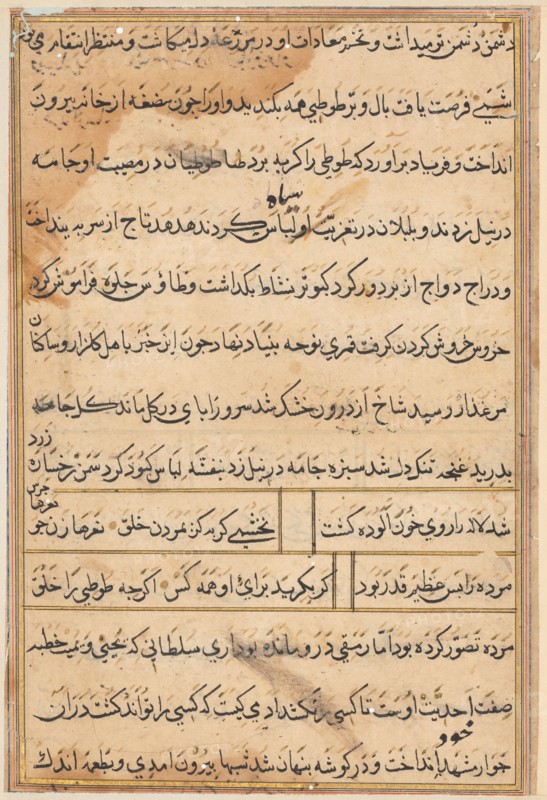 دشمن دشمن تر میداشت و تخم معادات او در مزرعه دل میکاشت و منتظر انتقام می بود
شبی فرصت یافت بال و پر طوطی همه بکندید و او را چون مضغه از خانه بیرون
انداخت و فریاد برآورد که طوطی را کربه برد طوطیان در مصیبت او جامه
در نیل زدند و بلبلان در تعزیت او لباس سیاه کردند هدهد تاج از سر بینداخت
و دراج دواج از بر دور کرد کبوتر نشاط بکذاشت و طاوس جلوه فراموش کرد
خروس خروش کردن کرفت قمری نوحه بنیاد نهاد چون این خبر باهل کلزار و ساکنان
مرغزار رسید شاخ از درون خشک شد سرو را پای در کل ماند کل جامه
بدرید غنچه تنک دل شد سبزه جامه در نیل زد بنفشه لباس کبود کرد سمن رخساره زرد
شد لاله را روی خون آلوده کشت نخشبی کریه کن بمردن خلق نعرها زن چو
مرده را بس عظیم قدر بود کر بکریید برای او همه کس اکرچه طوطی را خلق
مرده تصور کرده بود اما رمقی در و مانده بود سلطانی که یحیی و یمیت خطبه
صفت احدیت اوست تا کسی را نکشد آدمی کیست که کسی را تواند کشت در آن
جوار مشهد خود انداخت و در کوشه پنهان شد شبها بیرون آمدی و بطعمه اندک